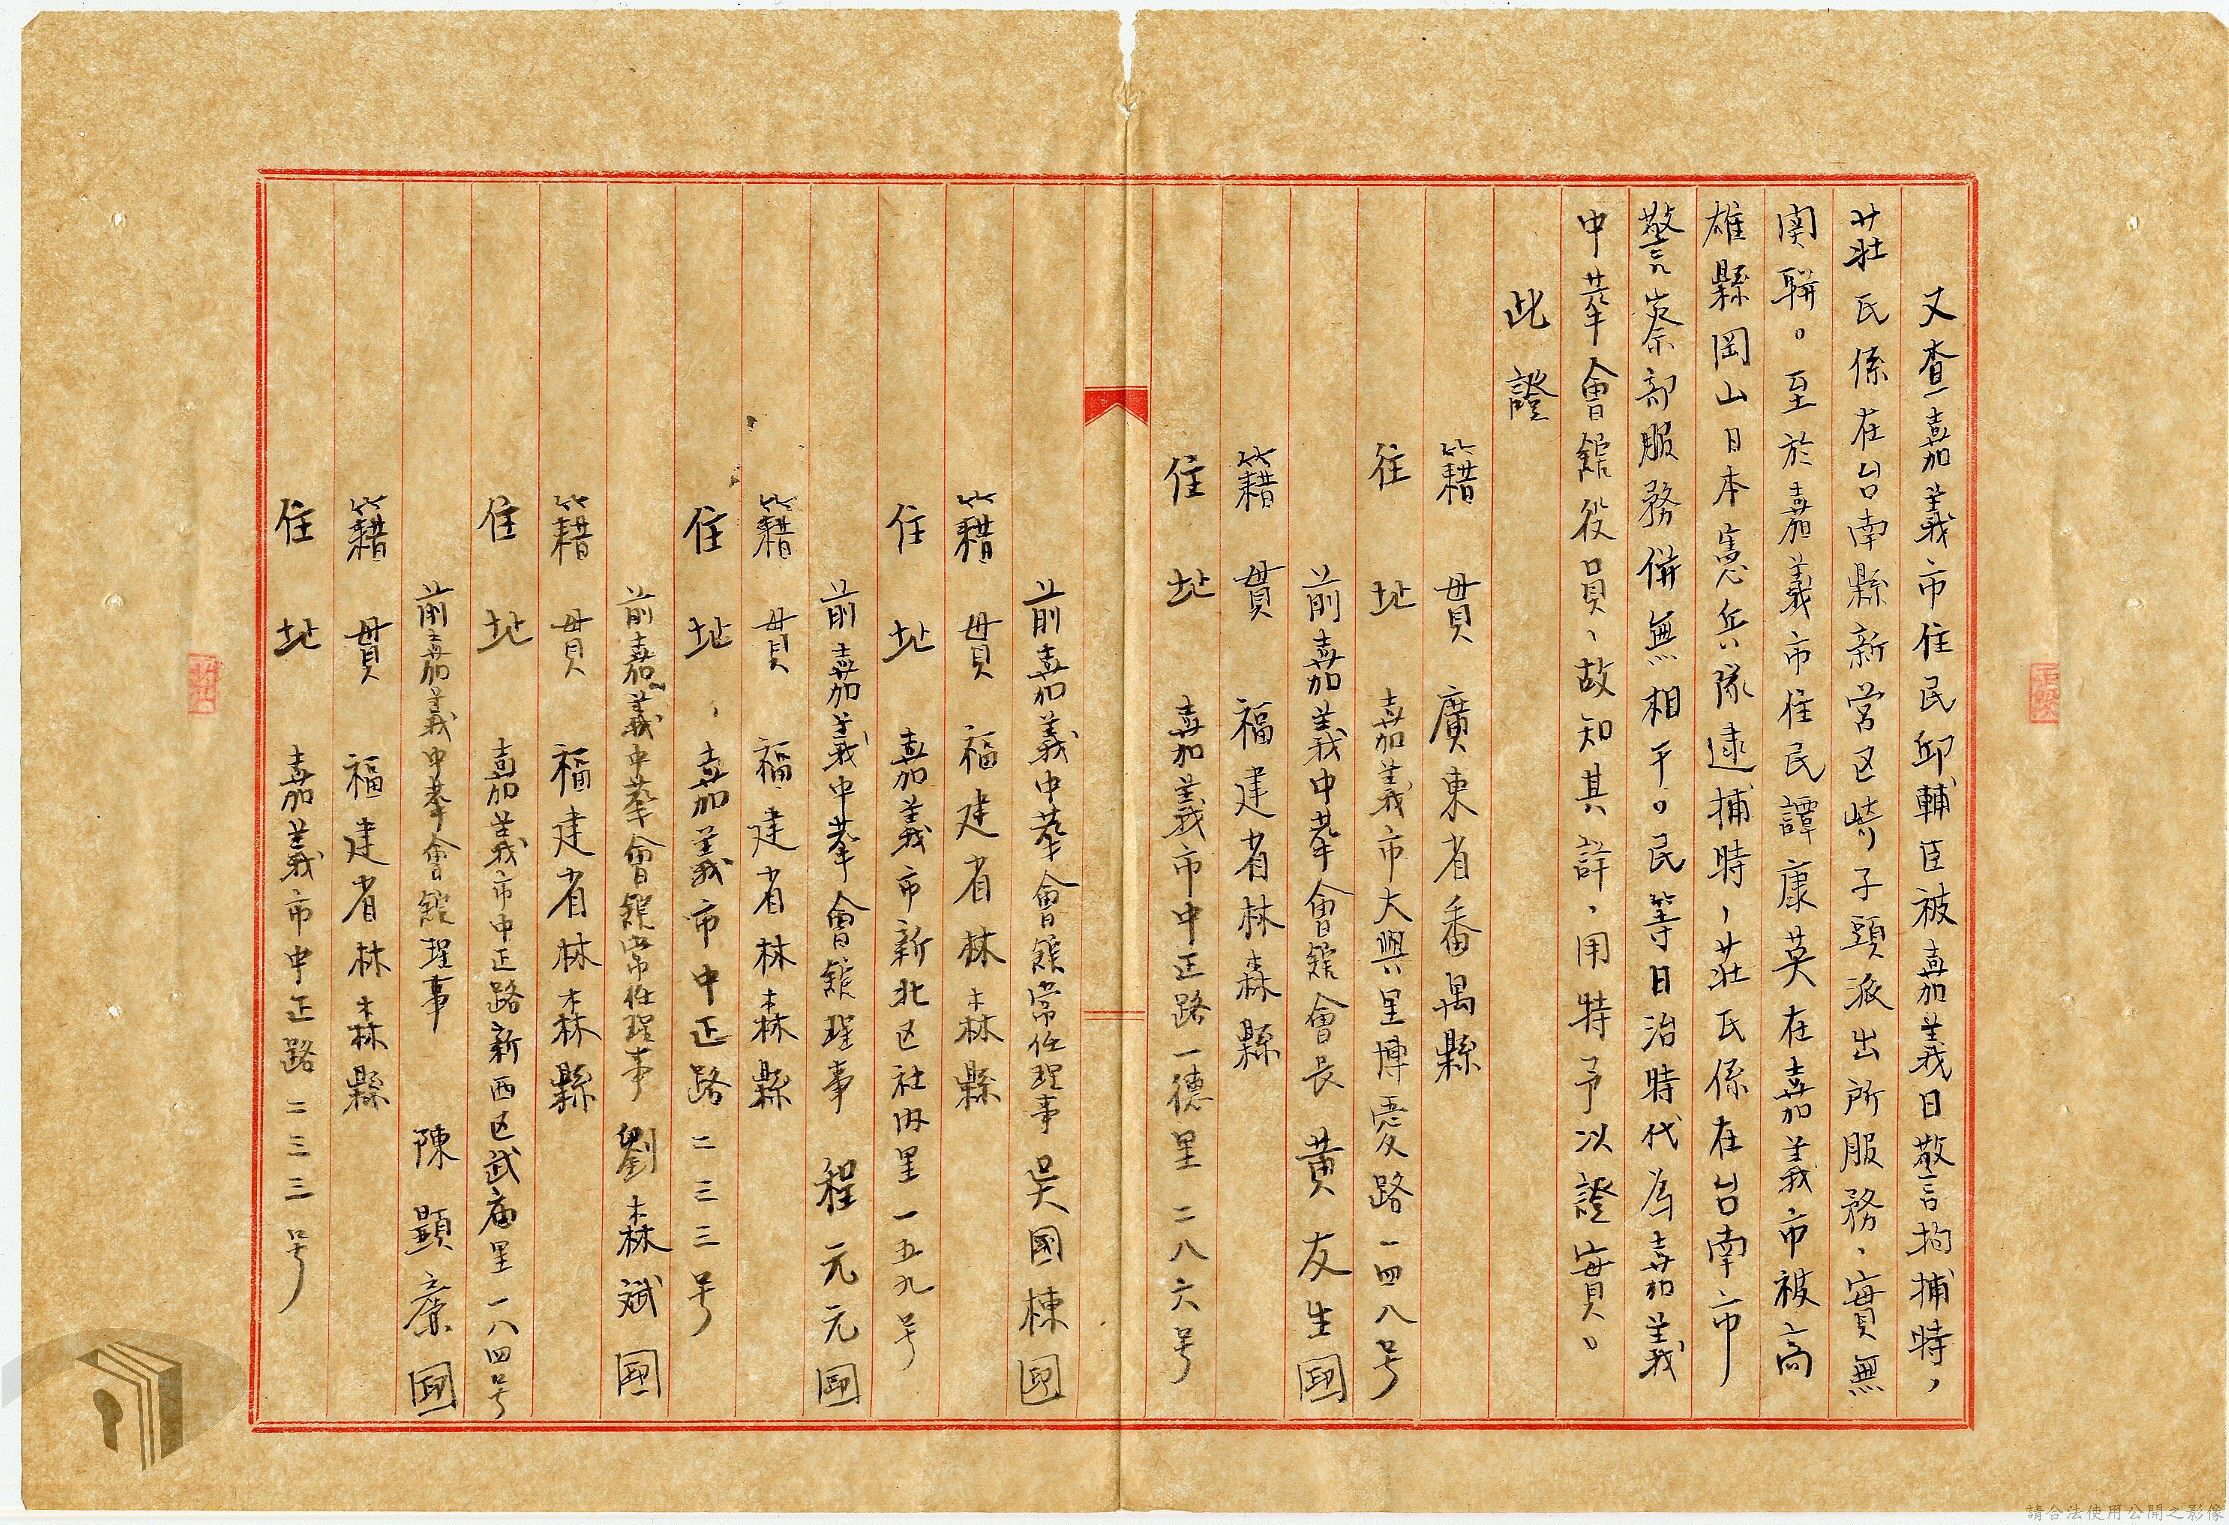 又查嘉義市住民邱輔臣被嘉義日警拘捕時,
莊氏係在台南縣新営区崎子頭派出所服務、實無
関聯。至於嘉義市住民譚康英在嘉義市被高
雄縣岡山日本憲兵隊逮捕時,莊氏係在台南市
警察部服務併無相干。民等日治時代為嘉義
中華會館役員、故知其詳、用特予以證實。
此證
籍貫 廣東省番禺縣
住址 嘉義市大興里博愛路一四八号
前嘉義中華會館會長 黄友生 印
籍貫 福建省林森縣
住址 嘉義市中正路一德里二八六号
前嘉義中華會館常任理事 吴國棟 印
籍貫 福建省林森縣
住址 嘉義市新北区社内里一五九号
前嘉義中華會館理事 程元元 印
籍貫 福建省林森縣
住址、嘉義市中正路二三三号
前嘉義中華會館常任理事 劉森斌 印
籍貫 福建省林森縣
住址 嘉義市中正路新西区武庙里一八四号
前嘉義中華會館理事 陳顕 印
籍貫 福建省林森縣
住址 嘉義市中正路二三三号
請合法使用公開之影像